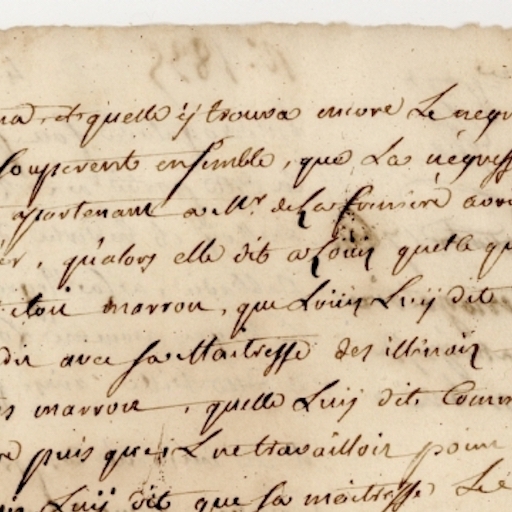 et quelle ÿ trouva encore Le negr
Souperent ensemble, que La négresse
apartenant a Mr. de La freniere avoi
er, qu'alors elle dit a Loüis quelle qu
etoit marron, que Loüis Luÿ dit
du avec Sa Maitresse des illinois
marron, quelle Luÿ dit Comm
puis que Lne travailloit pour
Luÿ dit que Sa maitresse Le